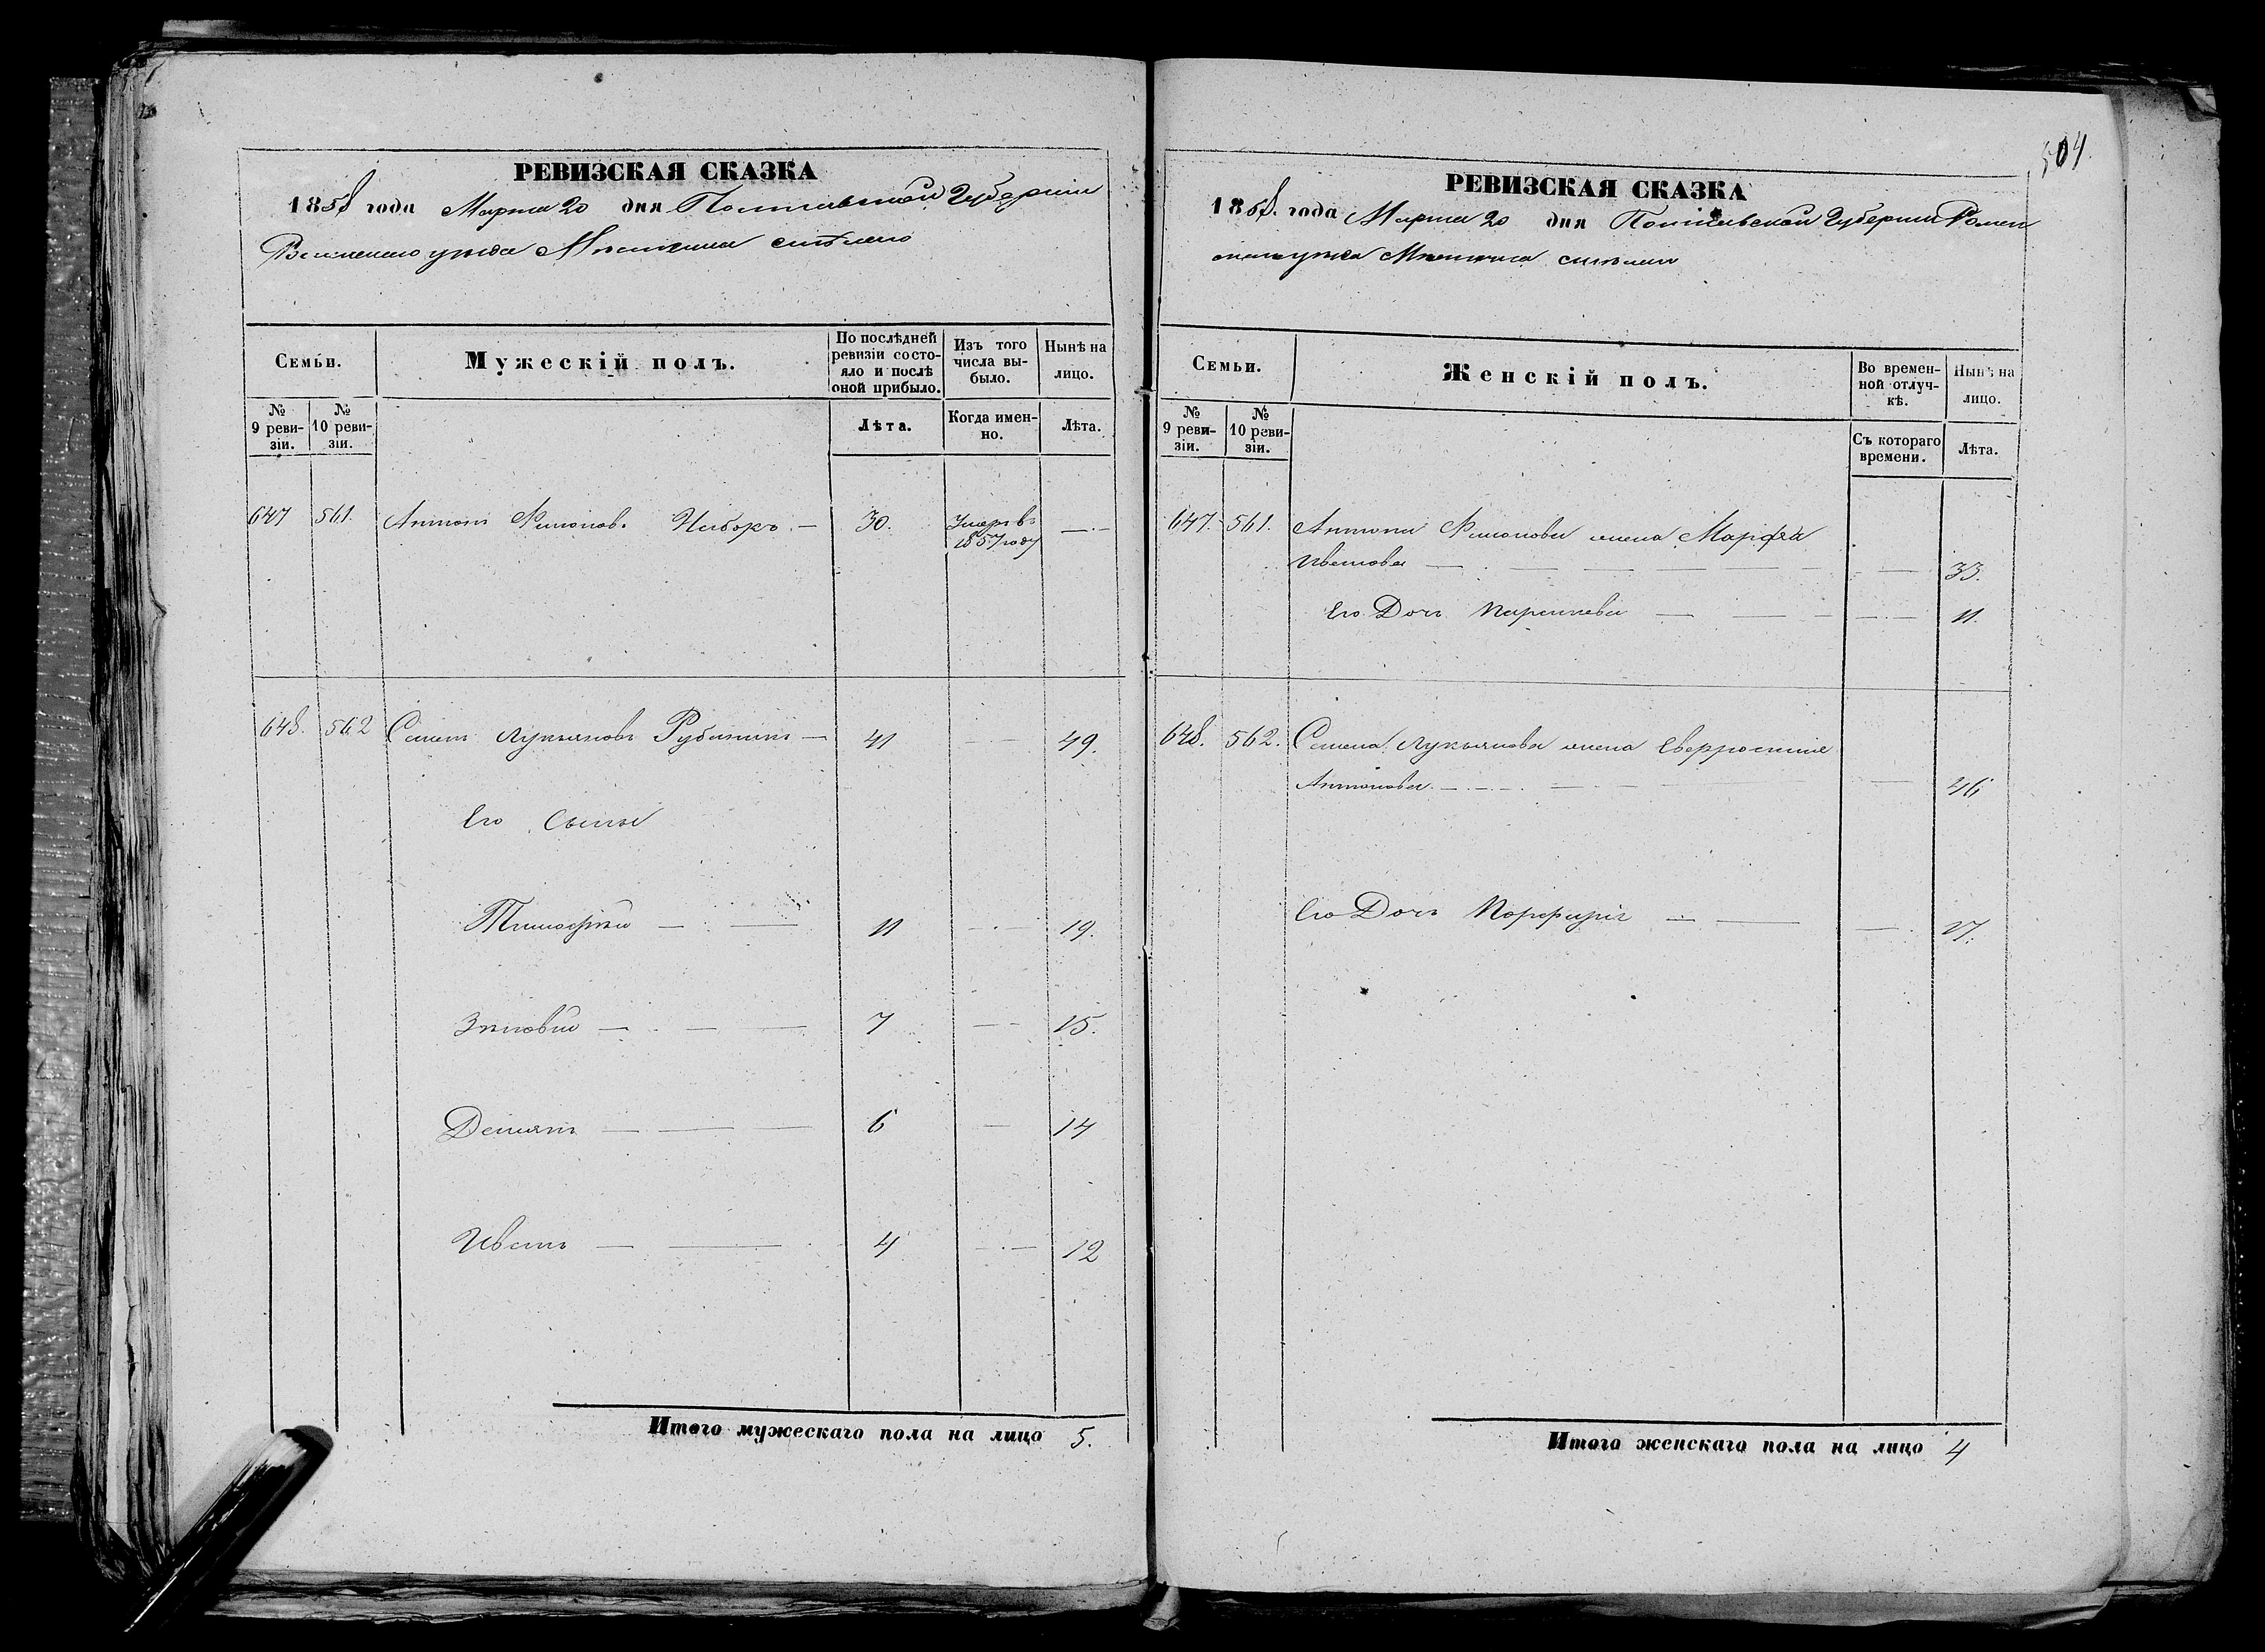 РЕВИЗСКАЯ СКАЗКА
1858 года Марта 20 дня Полтавской Губернии
Роменского уезда Местечка
Семьи.
Мужескій полъ.
По послѣдней ревизіи состояло и послѣ оной прибыло.
Изъ того числа выбыло.
Нынѣ на лицо.
№ 9 ревизіи.
№ 10 ревизіи.
Лѣта.
Когда именно.
Лѣта.
647 561. Антонъ 30. Умер в
1857 году
648. 562 Семенъ Лукьяновъ 41 49.
Его Сыны
Тимофѣй 11 19.
Зѣновій 7 15.
Демянъ 6 14
Иванъ 4 12
Итого мужескаго пола на лицо 5.
504.
РЕВИЗСКАЯ СКАЗКА
1858. года Марта 20 дня Полтавской Губернии Ромен
ского уезда Местечка
Семьи.
Женскій полъ.
Во временной отлучкѣ.
Нынѣ на лицо.
№ 9 ревизіи.
№ 10 ревизіи.
Съ котораго времени.
Лѣта.
647. 561. Антона жена Марфа
Иванова 33.
Его Дочь 11.
648. 562. Семена Лукьянова жена
Антонова 46
Его Дочь
Итого женскаго пола на лицо 4